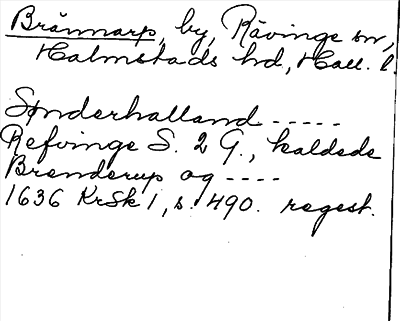 Brännarp, by, Rävinge sn,
Halmstads hd, Hall. l.
Sønderhalland -----
Refvinge S. 2 G., kaldede
Brenderup og ----
1636 KrSk 1, s. 490. regest.